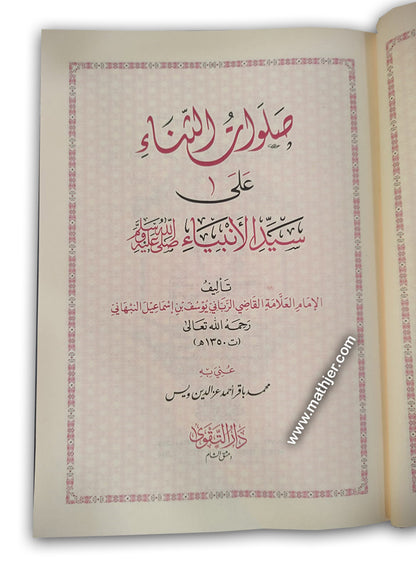 صَلَوَاتُ الثَّنَاءِ
عَلَى
سَيِّدِ الْأَنْبِيَاءِ صَلَّى اللّٰهُ عَلَيْهِ وَسَلَّمَ
تَأليفُ
الإِمَامِ العَلَّامَةِ القَاضِي الرَّبَّانِي يُوسُفَ بْنِ إِسْمَاعِيلَ النَّبْهَانِي
رَحِمَهُ اللهُ تَعَالَى
(ت ١٣٥٠هـ)
عُنِيَ بِهِ
محمد باقر أحمد عز الدين ويس
دَارُ التَّقْوَى
دمشق الشام
www.mathjer.com